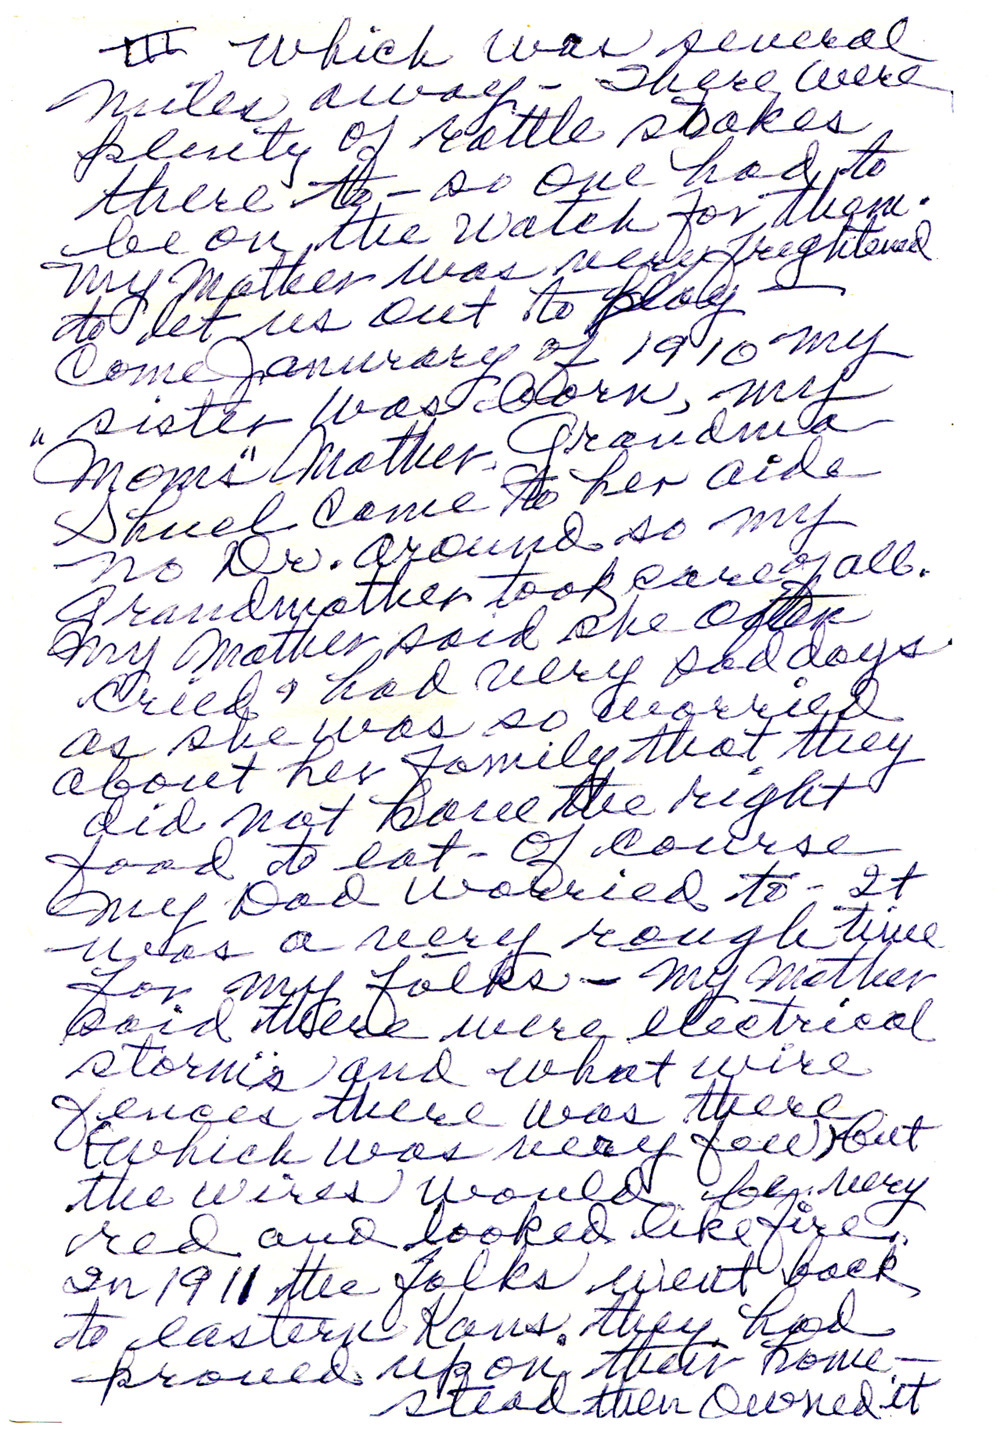 III Which was several
miles away - There were
plenty of rattle snakes
there to - so one had to
be on the watch for them.
My Mother was very frightened
to let us out to play -
Come Janurary of 1910 my
sister was born, my
"Moms" Mother - Grandma
Shuel Come to her aide
no Dr. around so my
grandmother took care of all.
My Mother said she often
cried & had very sad days
as she was so worried
about her family that they
did not have the right
food to eat - Of course
my Dad worried to - It
was a very rough time
for my folks - My Mother
said there were electrical
storms and what wire
fences there was there
(which was very few) but
the wires would be very
red and looked like fire.
In 1911 the folks went back
to eastern Kans. they had
proved up on their home-
stead then owned it